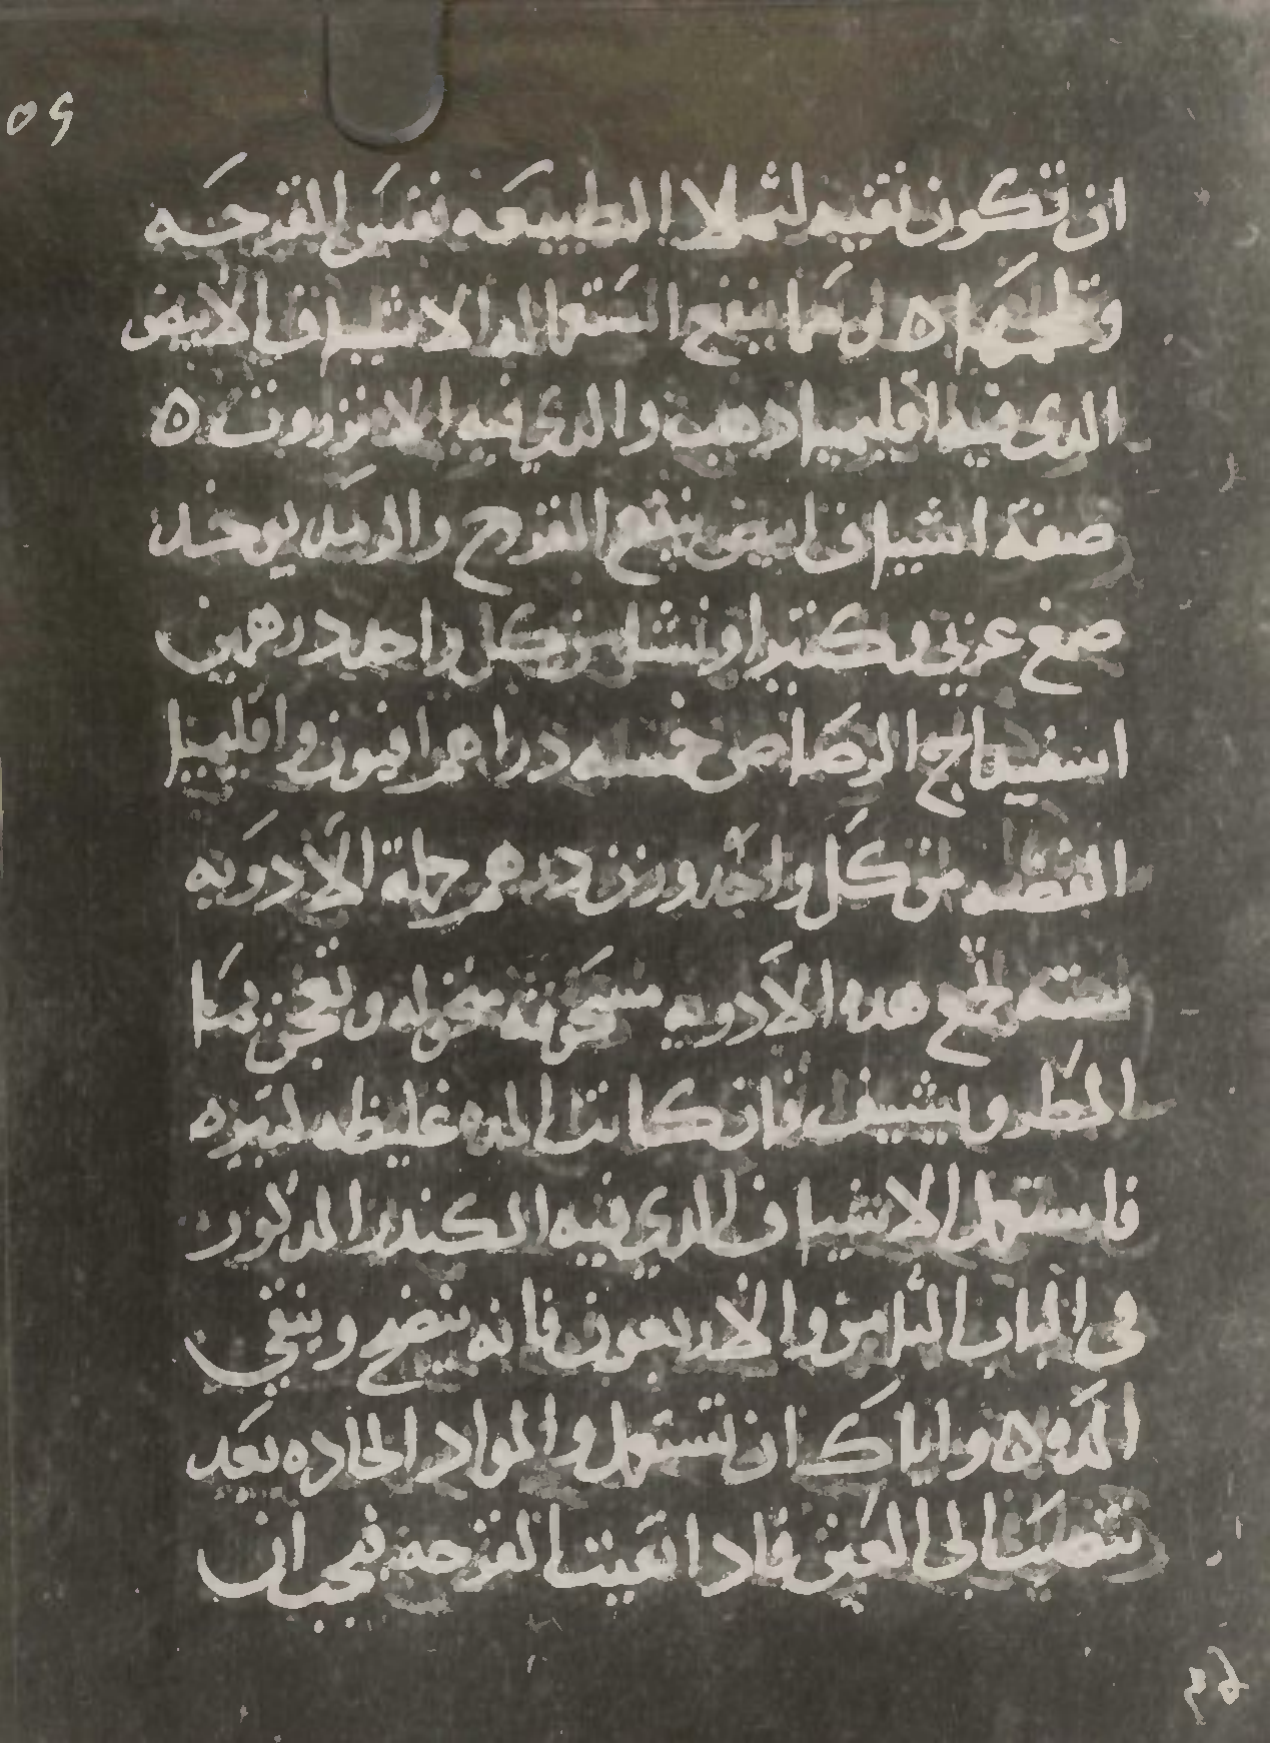 ان تكون نقيه لتملا الطبيعه نفس القرحه
وتلحمها ٥ ومما ينفع استعمال الاشياف الابيض
الذى فيه اقليميا دهب والذي فيه الانزروت ٥
صفة اشياف ابيض ينفع القرح والرمد يوخذ
صمغ عربي وكتيرا ونشا من كل واحد درهمين
اسفيداج الرصاص خمسه دراهم افيون واقليميا
الفضه من كل واحد وزن درهم جملة الادويه
سته تجمع هذه الادويه مسحوقه منخوله وتعجن بما
المطر ويشيف فان كانت المده غليظه لتيره
فاستعمل الاشياف الذي فيه الكندر المذكور
فى الباب الثامن والاربعون فانه ينضج وينقي
المده ٥ واياك ان تستعمل والمواد الحاده بعد
تنصب الى العين فادا نقيت القرحه فيجب ان